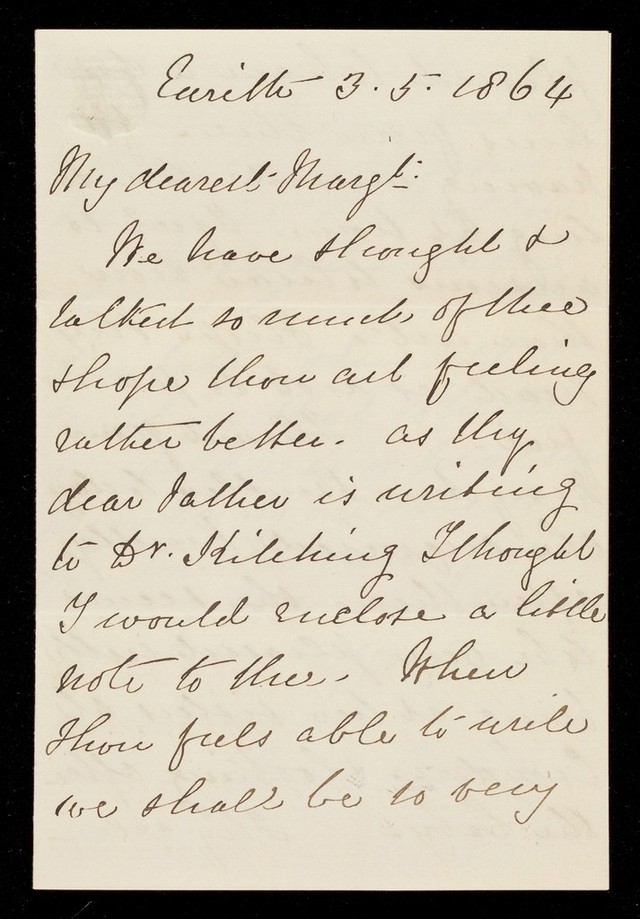 Earith 3.5.1864
My dearest Margt.
We have thought &
talked so much of thee
& hope thou art feeling
rather better. as thy
dear Father is writing
to Dr. Kitching I thought
I would enclose a little
note to thee. When
thou feels able to write
we shall be so very